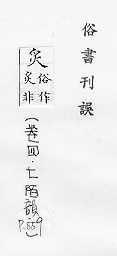 俗書刊誤
炙
俗作
炙非
(卷四·七陌韻
P.559)